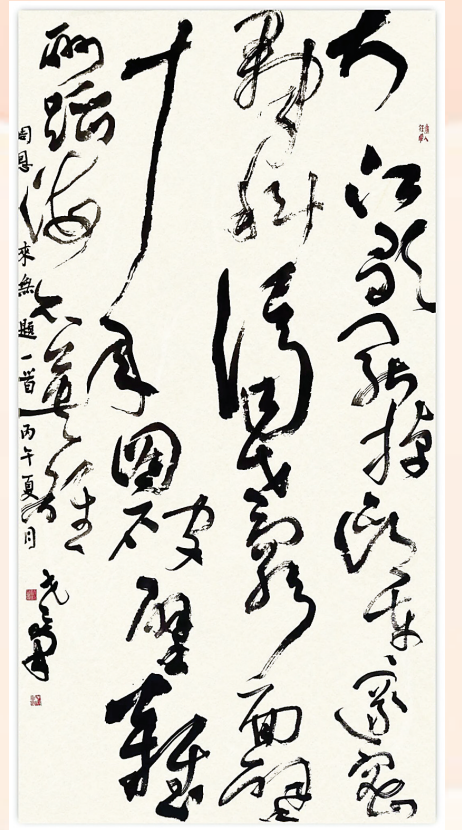 大江歌罷掉頭東邃密
群科濟世窮面壁
十年圖破壁難
酬蹈海亦英雄
周恩來無題一首丙午夏月